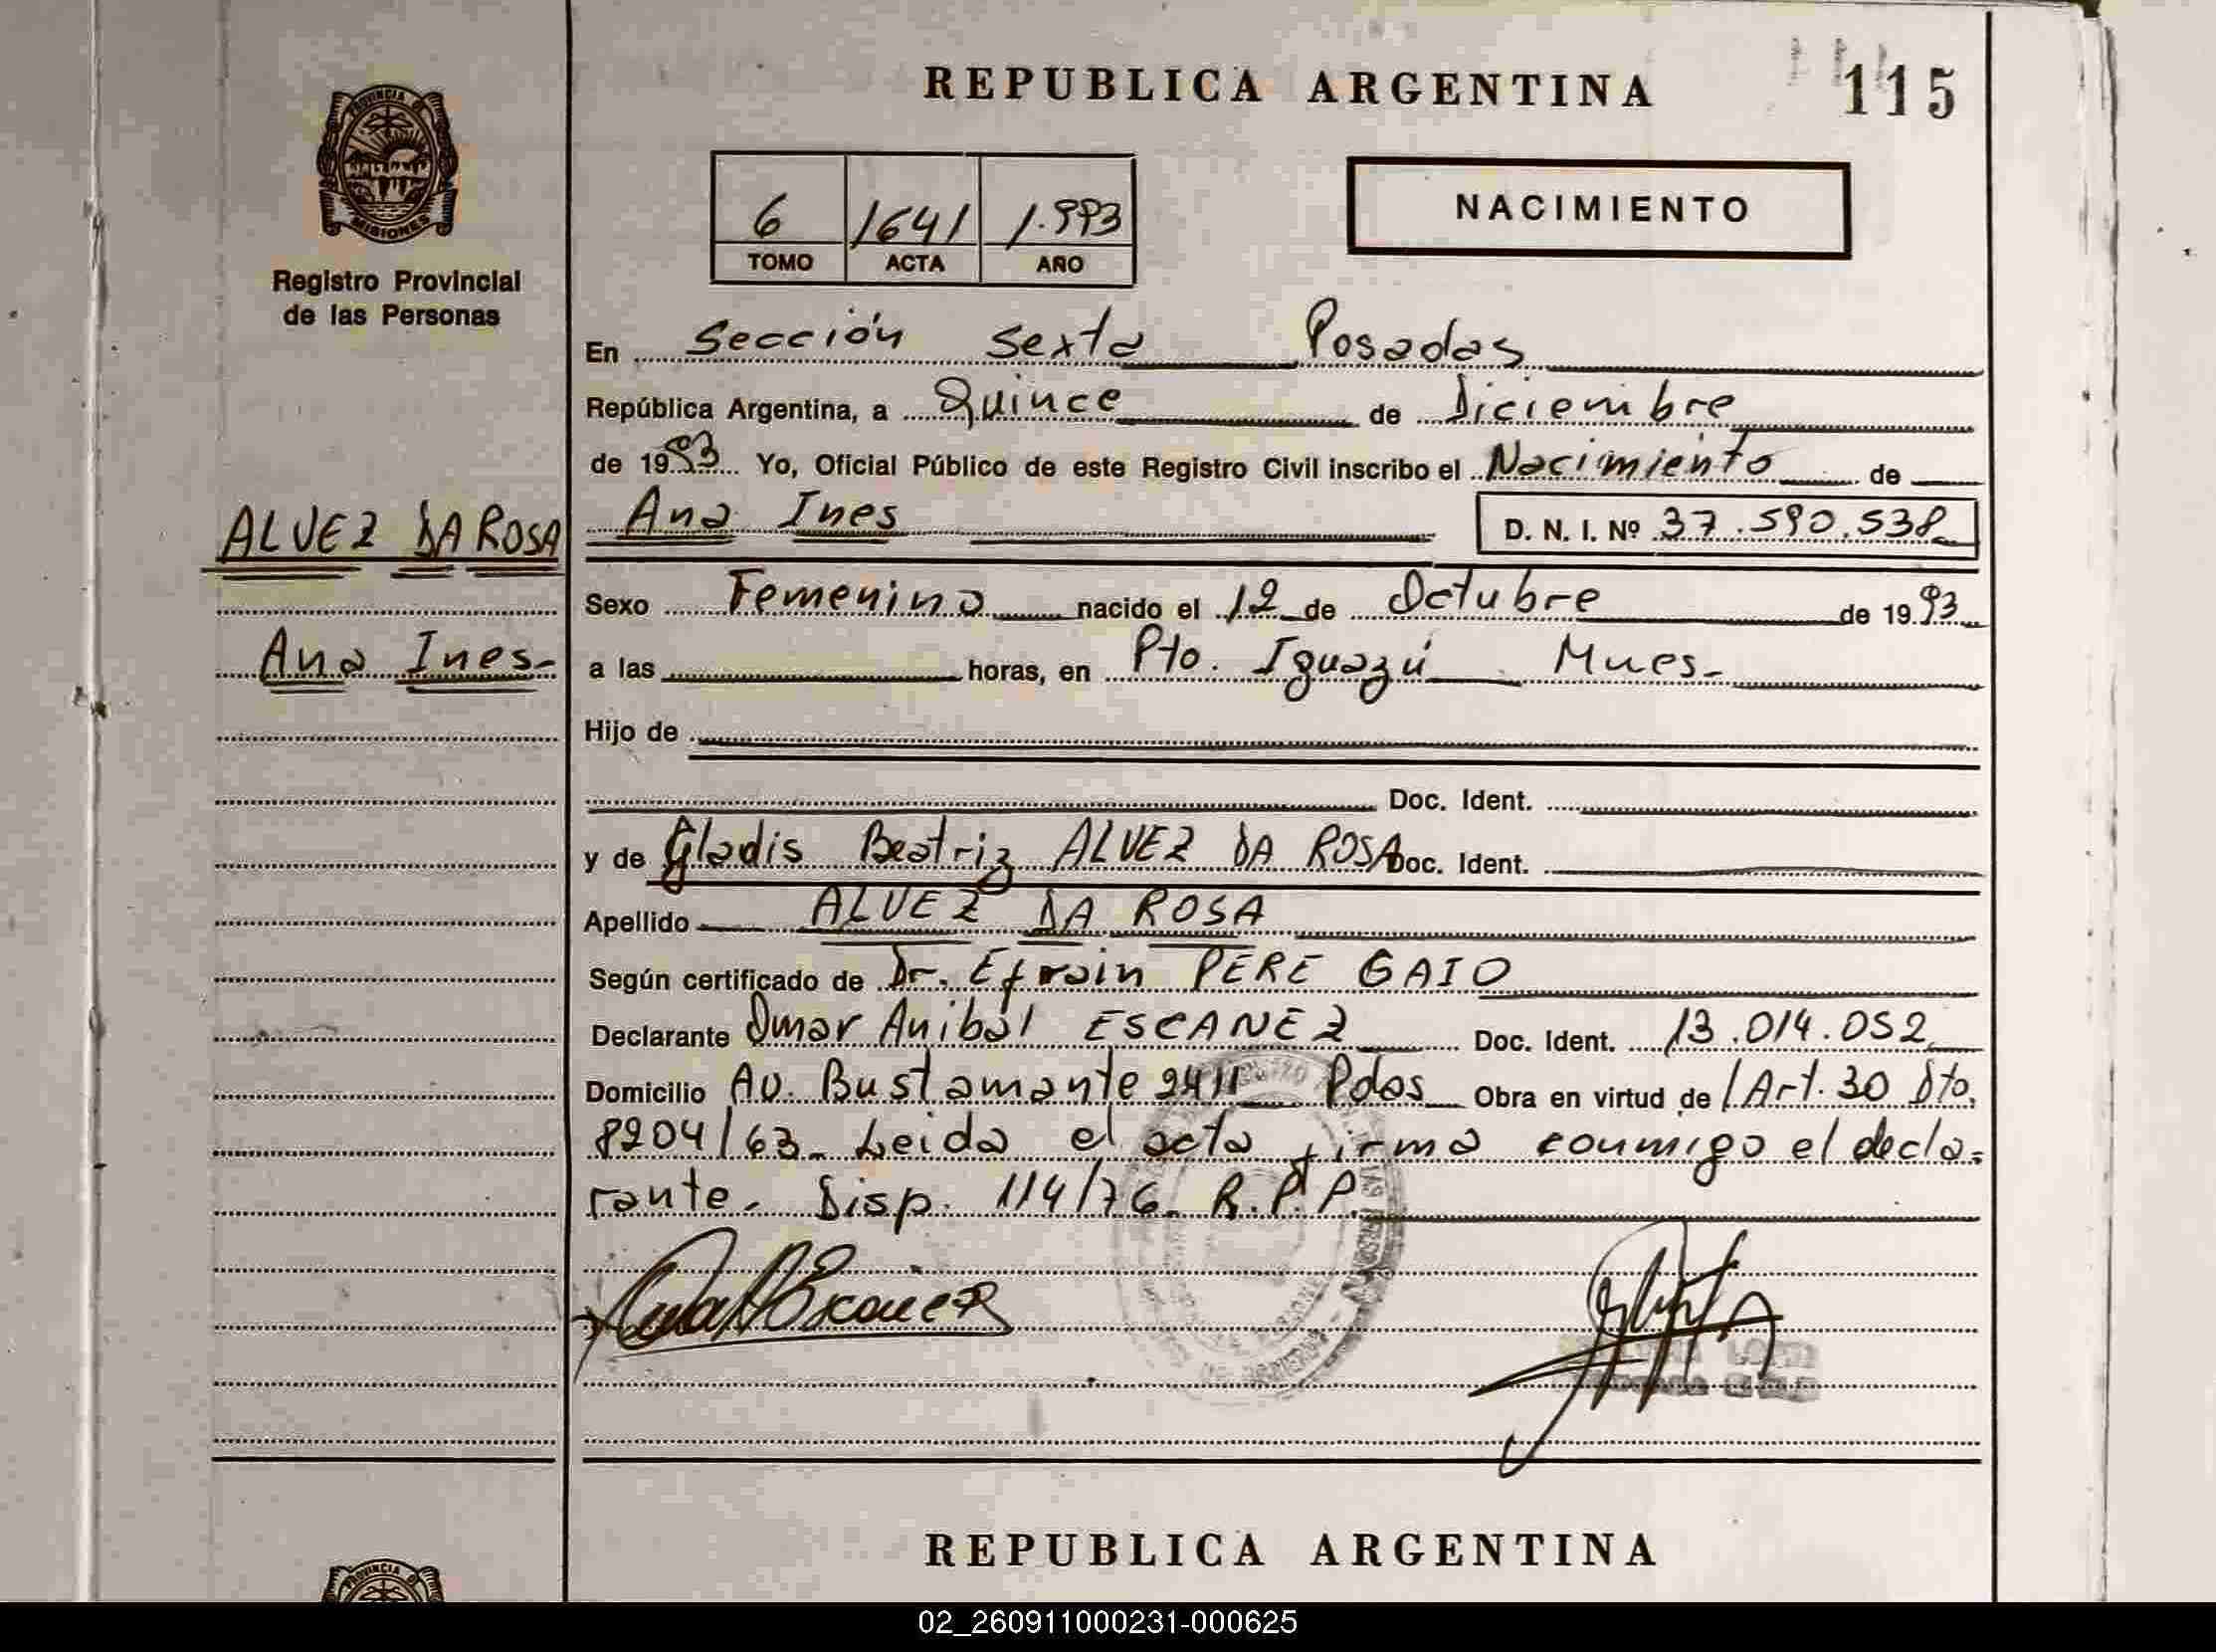 REPUBLICA ARGENTINA
115
PROVINCIA DE
MISIONES
Registro Provincial
de las Personas
6 1641 1.993
TOMO ACTA AÑO
NACIMIENTO
En Sección Sexta Posadas
República Argentina, a Quince de Diciembre
de 1993 Yo, Oficial Público de este Registro Civil inscribo el Nacimiento de
ALVEZ DA ROSA
Ana Ines D. N. I. Nº 37.590.538
Sexo Femenino nacido el 12 de Octubre de 1993
Ana Ines-
a las horas, en Pto. Iguazú Mnes-
Hijo de
Doc. Ident.
y de Gladis Beatriz ALVEZ DA ROSA Doc. Ident.
Apellido ALVEZ DA ROSA
Según certificado de Dr. Efrain PERE GAIO
Declarante Omar Anibal ESCANEZ Doc. Ident. 13.014.052
Domicilio Av. Bustamante 2411 Pdas Obra en virtud de /Art. 30 Dto.
8204/63- Leida el acta firma conmigo el decla-
rante. Disp. 114/76- R.P.P.
REPUBLICA ARGENTINA
PROVINCIA DE
02_260911000231-000625